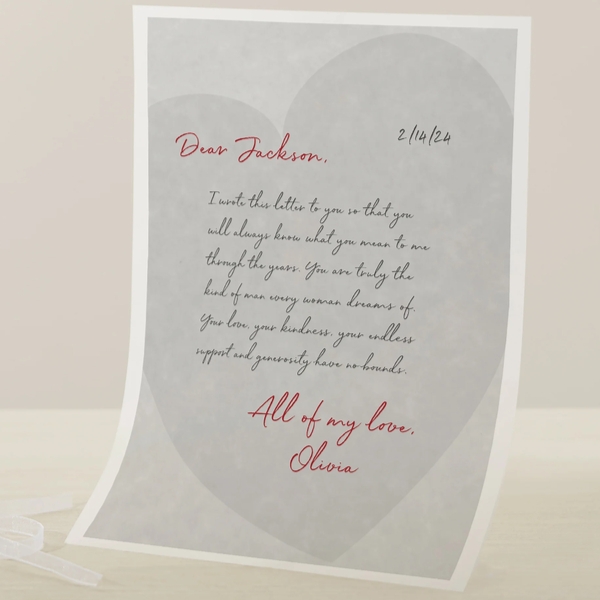 2/14/24
Dear Jackson,
I wrote this letter to you so that you
will always know what you mean to me
through the years. You are truly the
kind of man every woman dreams of.
Your love, your kindness, your endless
support and generosity have no bounds.
All of my love,
Olivia